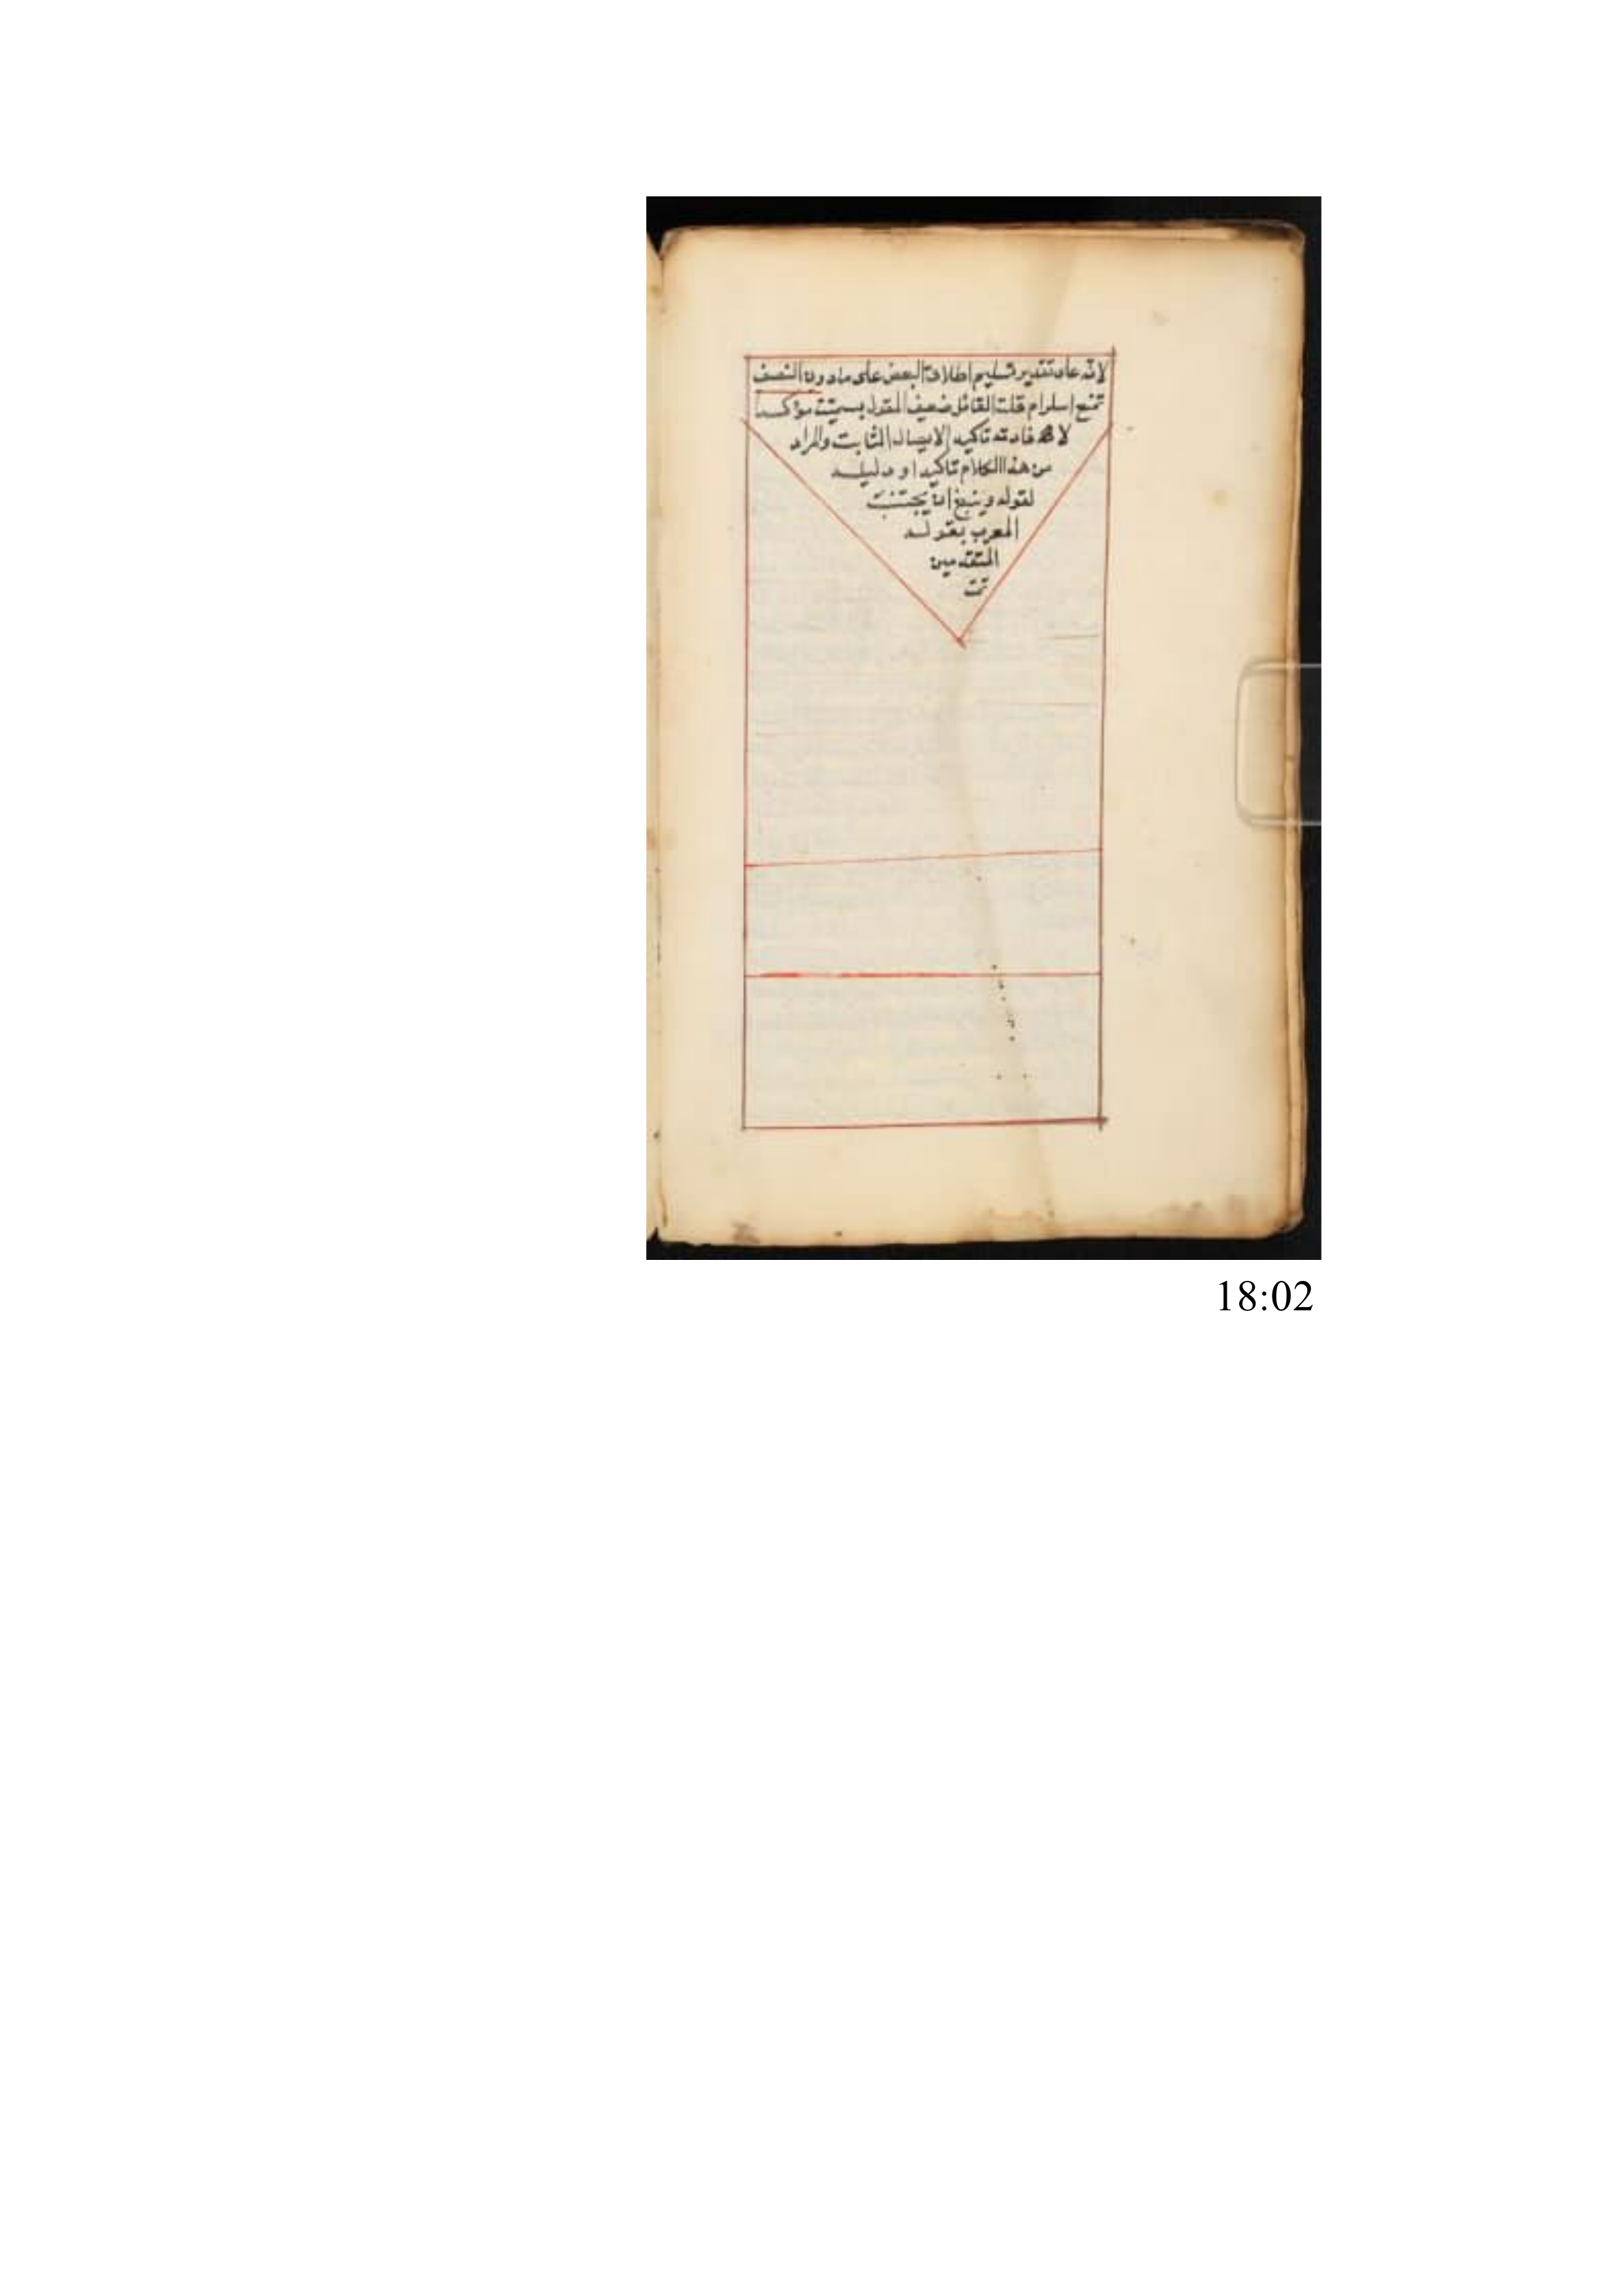 لانه على تقدير تسليم اطلاق البعض على مادون النصف
تمنع استلزام قلت القائل ضعيف القول بسميت مؤكدا
لافادته تاكيد الايصال الثابت والمراد
من هذا الكلام تاكيدا و دليلـه
لقوله وينبغ ان يجتنب
المعرب بقولـه
المتقدمين
تمت
18:02